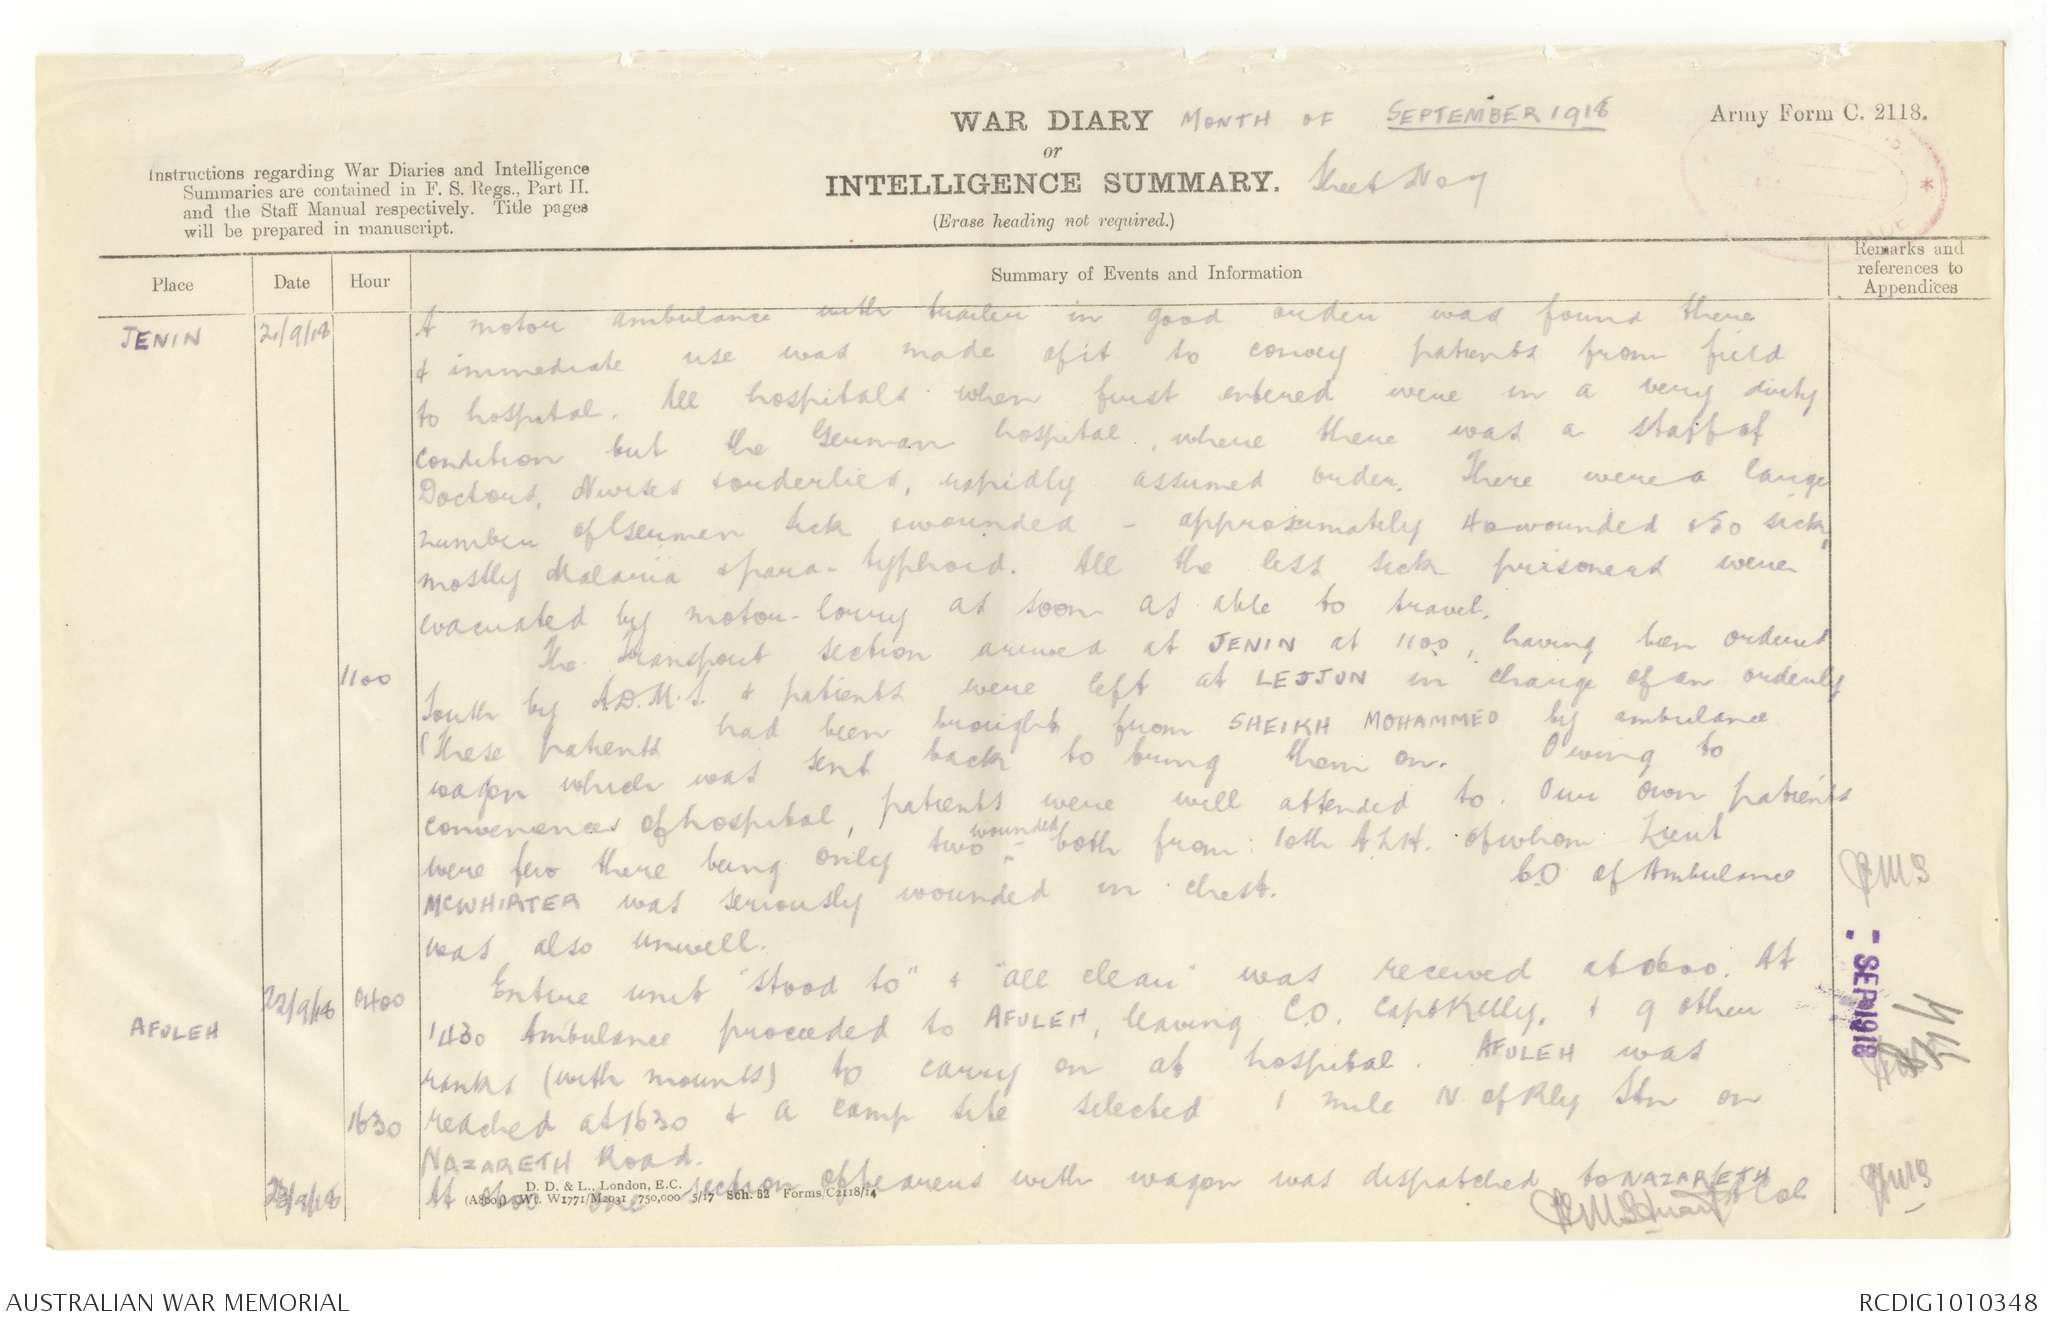 WAR DIARY MONTH OF SEPTEMBER 1918
or
INTELLIGENCE SUMMARY. Sheet No 7
(Erase heading not required.)
Army Form C. 2118.
Instructions regarding War Diaries and Intelligence
Summaries are contained in F. S. Regs., Part II.
and the Staff Manual respectively. Title pages
will be prepared in manuscript.
Place Date Hour Summary of Events and Information Remarks and references to Appendices
JENIN 21/9/18 A motor ambulance with trailer in good order was found there
& immediate use was made of it to convey patients from field
to hospital. All hospitals when first entered were in a very dirty
condition but the German hospital, where there was a staff of
Doctors, Nurses & orderlies, rapidly assumed order. There were a large
number of Germen sick & wounded - approximately 40 wounded & 50 sick,
mostly Malaria & para-typhoid. All the less sick prisoners were
evacuated by motor-lorry as soon as able to travel.
The Transport section arrived at JENIN at 1100, having been ordered
1100 South by A.D.M.S. & patients were left at LEJJUN in charge of an orderly
(These patients had been brought from SHEIKH MOHAMMED by ambulance
wagon which was sent back to bring them on. Owing to
conveniences of hospital, patients were well attended to. Our own patients
were few there being only two wounded - both from 10th A.L.H. of whom Lieut
MCWHIRTER was seriously wounded in chest. C.O of Ambulance
was also unwell.
22/9/18 0400 Entire unit "stood to" & "all clear" was received at 0600. At
AFULEH 1430 Ambulance proceeded to AFULEH, leaving C.O. Capt Kelly, & 9 other
ranks (with mounts) to carry on at hospital. AFULEH was
1630 reached at 1630 & a camp site selected 1 mile N of Rly Stn on
NAZARETH Road.
23/9/18 At one section of bearers with wagon was dispatched to NAZARETH
D. D. & L., London, E.C.
(A8001) Wt. W1771/M2031 750,000 5/17 Sch. 52 Forms/C2118/14
Lt Col
- SEP 1918
AUSTRALIAN WAR MEMORIAL
RCDIG1010348